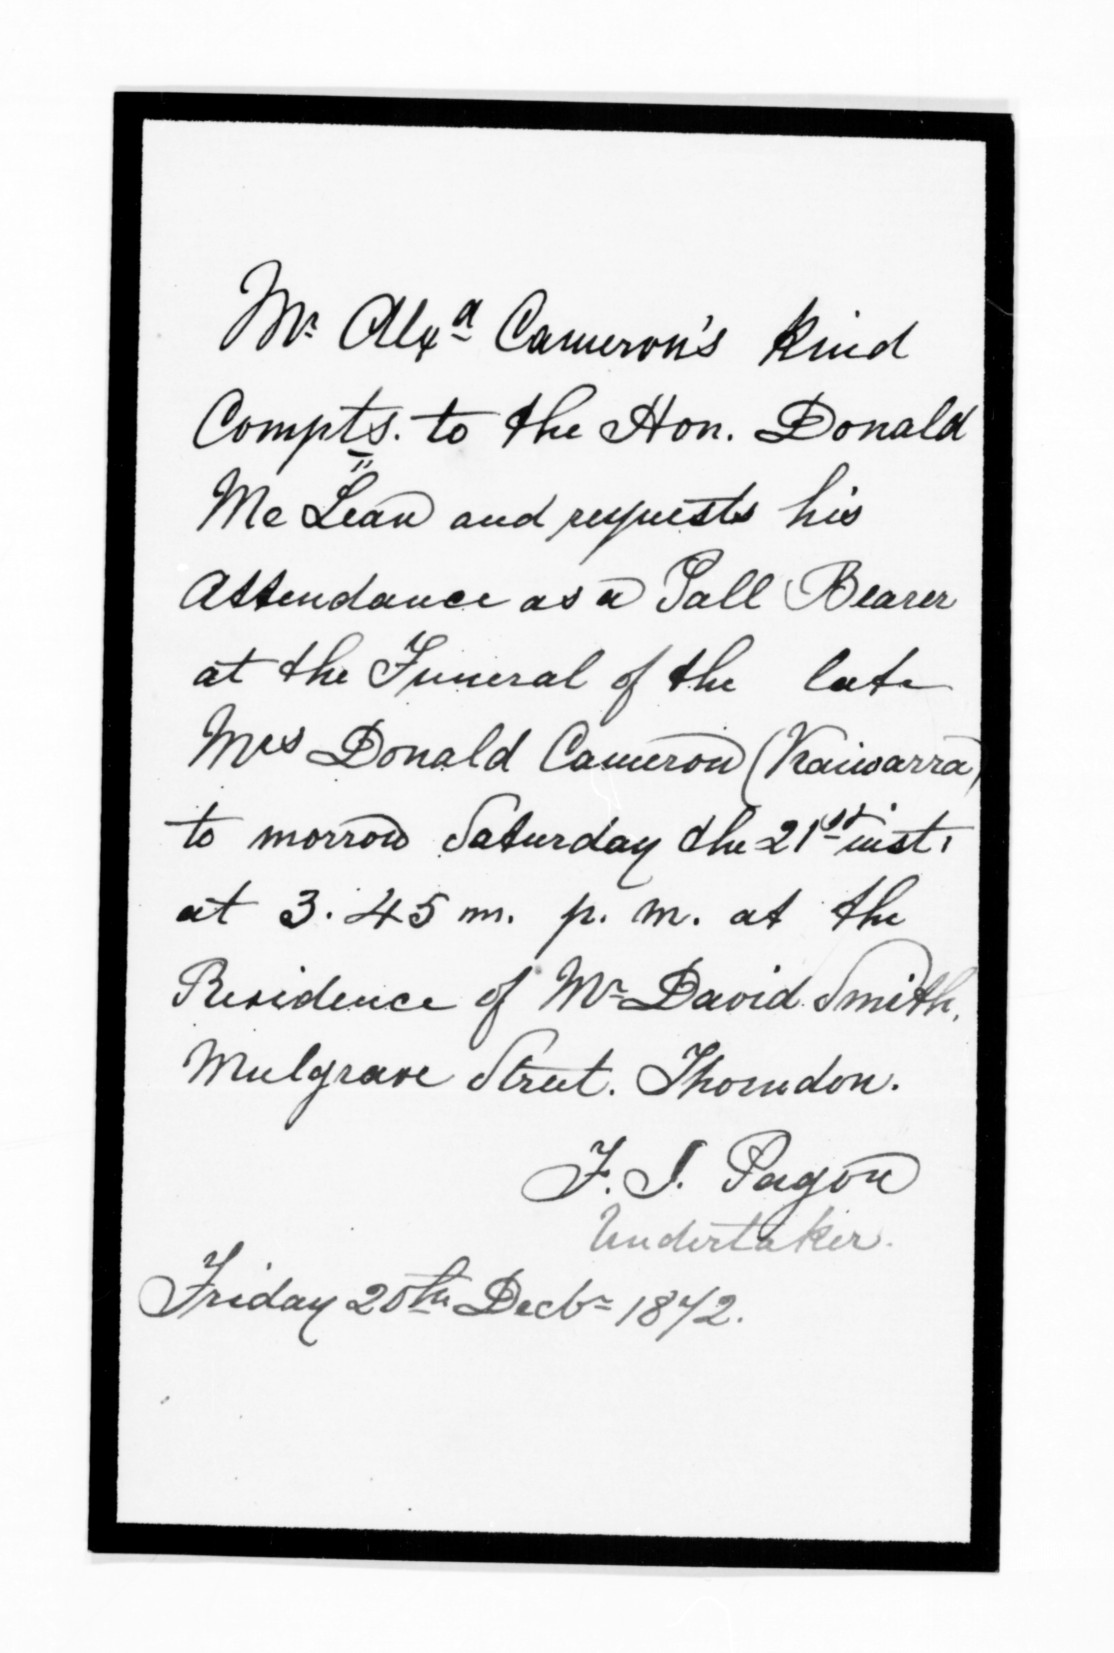 Mr. Alexa Cameron's kind
Compts. to the Hon. Donald
Mc Lean and requests his
Attendance as a Pall Bearer
at the Funeral of the late
Mrs Donald Cameron (Kaiwarra)
to morrow Saturday the 21st inst.
at 3.45 m. p. m. at the
Residence of Mr David Smith,
Mulgrave Street. Thorndon.
F. J. Pagon
Undertaker.
Friday 20th Decbr 1872.